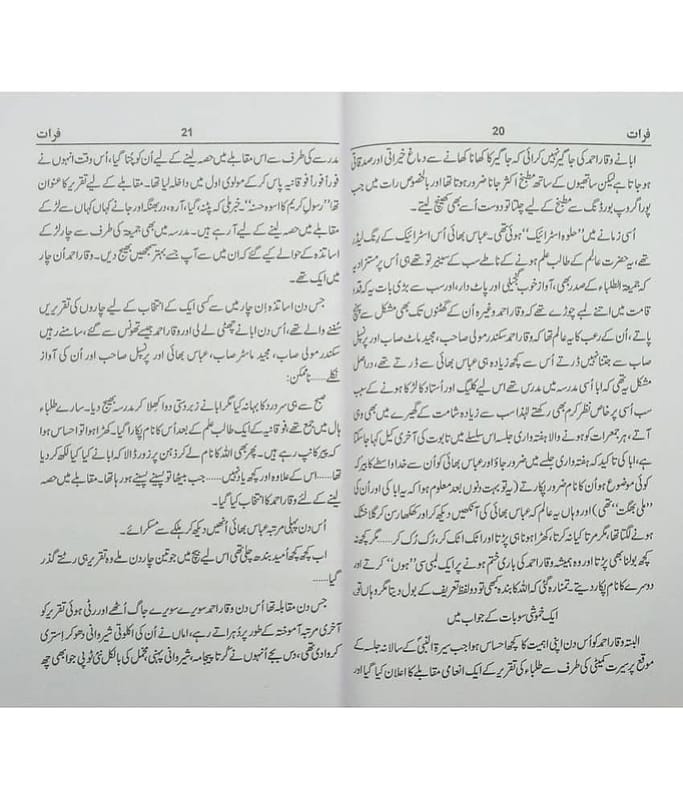 فرات
20
ابا نے وقار احمد کی جاگیر نہیں کرائی کہ جاگیر کا کھانا کھانے سے دماغ خیراتی اور صدقاتی
ہو جاتا ہے لیکن ساتھیوں کے ساتھ مطبخ اکثر جانا ضرور ہوتا تھا اور بالخصوص رات میں جب
پورا گروپ بورڈنگ سے مطبخ کے لیے چلتا تو دوست اُسے بھی کھینچ لیتے۔
اُسی زمانے میں ”حلوہ اسٹرائیک“ ہوئی تھی۔ عباس بھائی اُس اسٹرائیک کے رنگ لیڈر
تھے، یہ حضرت عالم کے طالب علم ہونے کے ناطے سب کے سینیر تو تھے ہی اُس پر مستزاد یہ
کہ جمیعۃ الطلباء کے صدر بھی، آواز خوب گھمبیلی اور پاٹ دار، اور سب سے بڑی بات یہ کہ قد و
قامت میں اتنے لمبے چوڑے تھے کہ وقار احمد وغیرہ اُن کے گھٹنوں تک بھی مشکل سے پہنچ
پاتے، اُن کے رعب کا یہ عالم تھا کہ وقار احمد سکندر مولی صاحب، مجید ماٹ صاب اور پرنسپل
صاب سے جتنا نہیں ڈرتے اُس سے کچھ زیادہ ہی عباس بھائی سے ڈرتے تھے، دراصل
مشکل یہ تھی کہ ابا اُسی مدرسہ میں مدرس تھے اس لیے کلیگ اور اُستاد کا لڑکا ہونے کے سبب
سب اُسی پر خاص نظر کرم بھی رکھتے لہٰذا سب سے زیادہ شامت کے گھیرے میں بھی وہی
آتے، ہر جمعرات کو ہونے والا ہفتہ واری جلسہ اس سلسلے میں تابوت کی آخری کیل کہا جا سکتا
ہے، ابا کی تاکید کہ ہفتہ واری جلسے میں ضرور جاؤ اور عباس بھائی کو اُن سے خدا واسطے کا بیر کہ
کوئی موضوع ہو اُن کا نام ضرور پکارتے (یہ تو بہت دنوں بعد معلوم ہوا کہ یہ ابا کی اور اُن کی
”ملی بھگت“ تھی) اور وہاں یہ عالم کہ عباس بھائی کی آنکھیں دیکھ کر اور کھکھار سن کر گلا خشک
ہونے لگتا تھا، مگر مرتا کیا نہ کرتا، کھڑا ہونا ہی پڑتا اور اٹک اٹک کر، رک رک کر ..... مگر کچھ نہ
کچھ بولنا بھی پڑتا اور وہ ہمیشہ وقار احمد کی باری ختم ہونے پر ایک لمبی سی ”ہوں“ کرتے اور
دوسرے کا نام پکار دیتے۔ تمنا رہ گئی کہ اللہ کا بندہ کبھی تو دو لفظ تعریف کے بول دیتا مگر وہاں تو،
ایک خموشی سو بات کے جواب میں
البتہ وقار احمد کو اُس دن اپنی اہمیت کا کچھ احساس ہوا جب سیرۃ النبیؐ کے سالانہ جلسہ کے
موقع پر سیرت کمیٹی کی طرف سے طلباء کی تقریر کے ایک انعامی مقابلے کا اعلان کیا گیا اور
21
فرات
مدرسے کی طرف سے اس مقابلے میں حصہ لینے کے لیے اُن کو چُنا گیا، اُس وقت انہوں نے
فوراً فوراً فوقانیہ پاس کر کے مولوی اول میں داخلہ لیا تھا۔ مقابلے کے لیے تقریر کا عنوان
تھا ”رسولِ کریمؐ کا اسوہ حسنہ“ خبر ملی کہ پٹنہ، گیا، آرہ، دربھنگہ اور جانے کہاں کہاں سے لڑکے
مقابلے میں حصہ لینے کے لیے آ رہے ہیں۔ مدرسہ میں بھی جمیعۃ کی طرف سے چار لڑکے
اساتذہ کے حوالے کیے گئے کہ ان میں سے آپ جسے بہتر سمجھیں بھیج دیں۔ وقار احمد اُن چار
میں ایک تھے۔
جس دن اساتذہ اِن چار میں سے کسی ایک کے انتخاب کے لیے چاروں کی تقریریں
سُننے والے تھے، اُس دن ابا نے چھٹی لے لی اور وقار احمد جیسے ٹھونس سے گئے، سامنے رہیں
سکندر مولی صاب، مجید ماسٹر صاب، عباس بھائی اور پرنسپل صاحب اور اُن کی آواز
نکلے ..... ناممکن:
صبح سے ہی سر درد کا بہانہ کیا مگر ابا نے زبردستی دوا کھلا کر مدرسہ بھیج دیا۔ سارے طلباء
ہال میں جمع تھے، فوقانیہ کے ایک طالب علم کے بعد اُس کا نام پکارا گیا۔ کھڑا ہوا تو احساس ہوا
کہ پیر کانپ رہے ہیں۔ پھر بھی اللہ کا نام لے کر ذہن پر زور ڈالا کہ ابا نے کیا کیا لکھ کر دیا
تھا ..... اس کے علاوہ اور کچھ یاد نہیں ..... جب بیٹھا تو پسینے پسینے ہو رہا تھا۔ مقابلے میں حصہ
لینے کے لئے وقار احمد کا انتخاب کیا گیا۔
اُس دن پہلی مرتبہ عباس بھائی اُنھیں دیکھ کر ہلکے سے مسکرائے۔
اب کچھ کچھ اُمید بندھ چلی تھی اس لیے بیچ میں جو تین چار دن ملے وہ تقریر ہی رٹتے گذر
گیا .....
جس دن مقابلہ تھا اُس دن وقار احمد سویرے سویرے جاگ اُٹھے اور رٹی ہوئی تقریر کو
آخری مرتبہ آموختہ کے طور پر دُہراتے رہے، اماں نے اُن کی اکلوتی شیروانی دھو کر اِستری
کروا دی تھی، دس بجے اُنہوں نے کُرتا پیجامہ، شیروانی پہنی مخمل کی بالکل نئی ٹوپی جو ابھی چھ